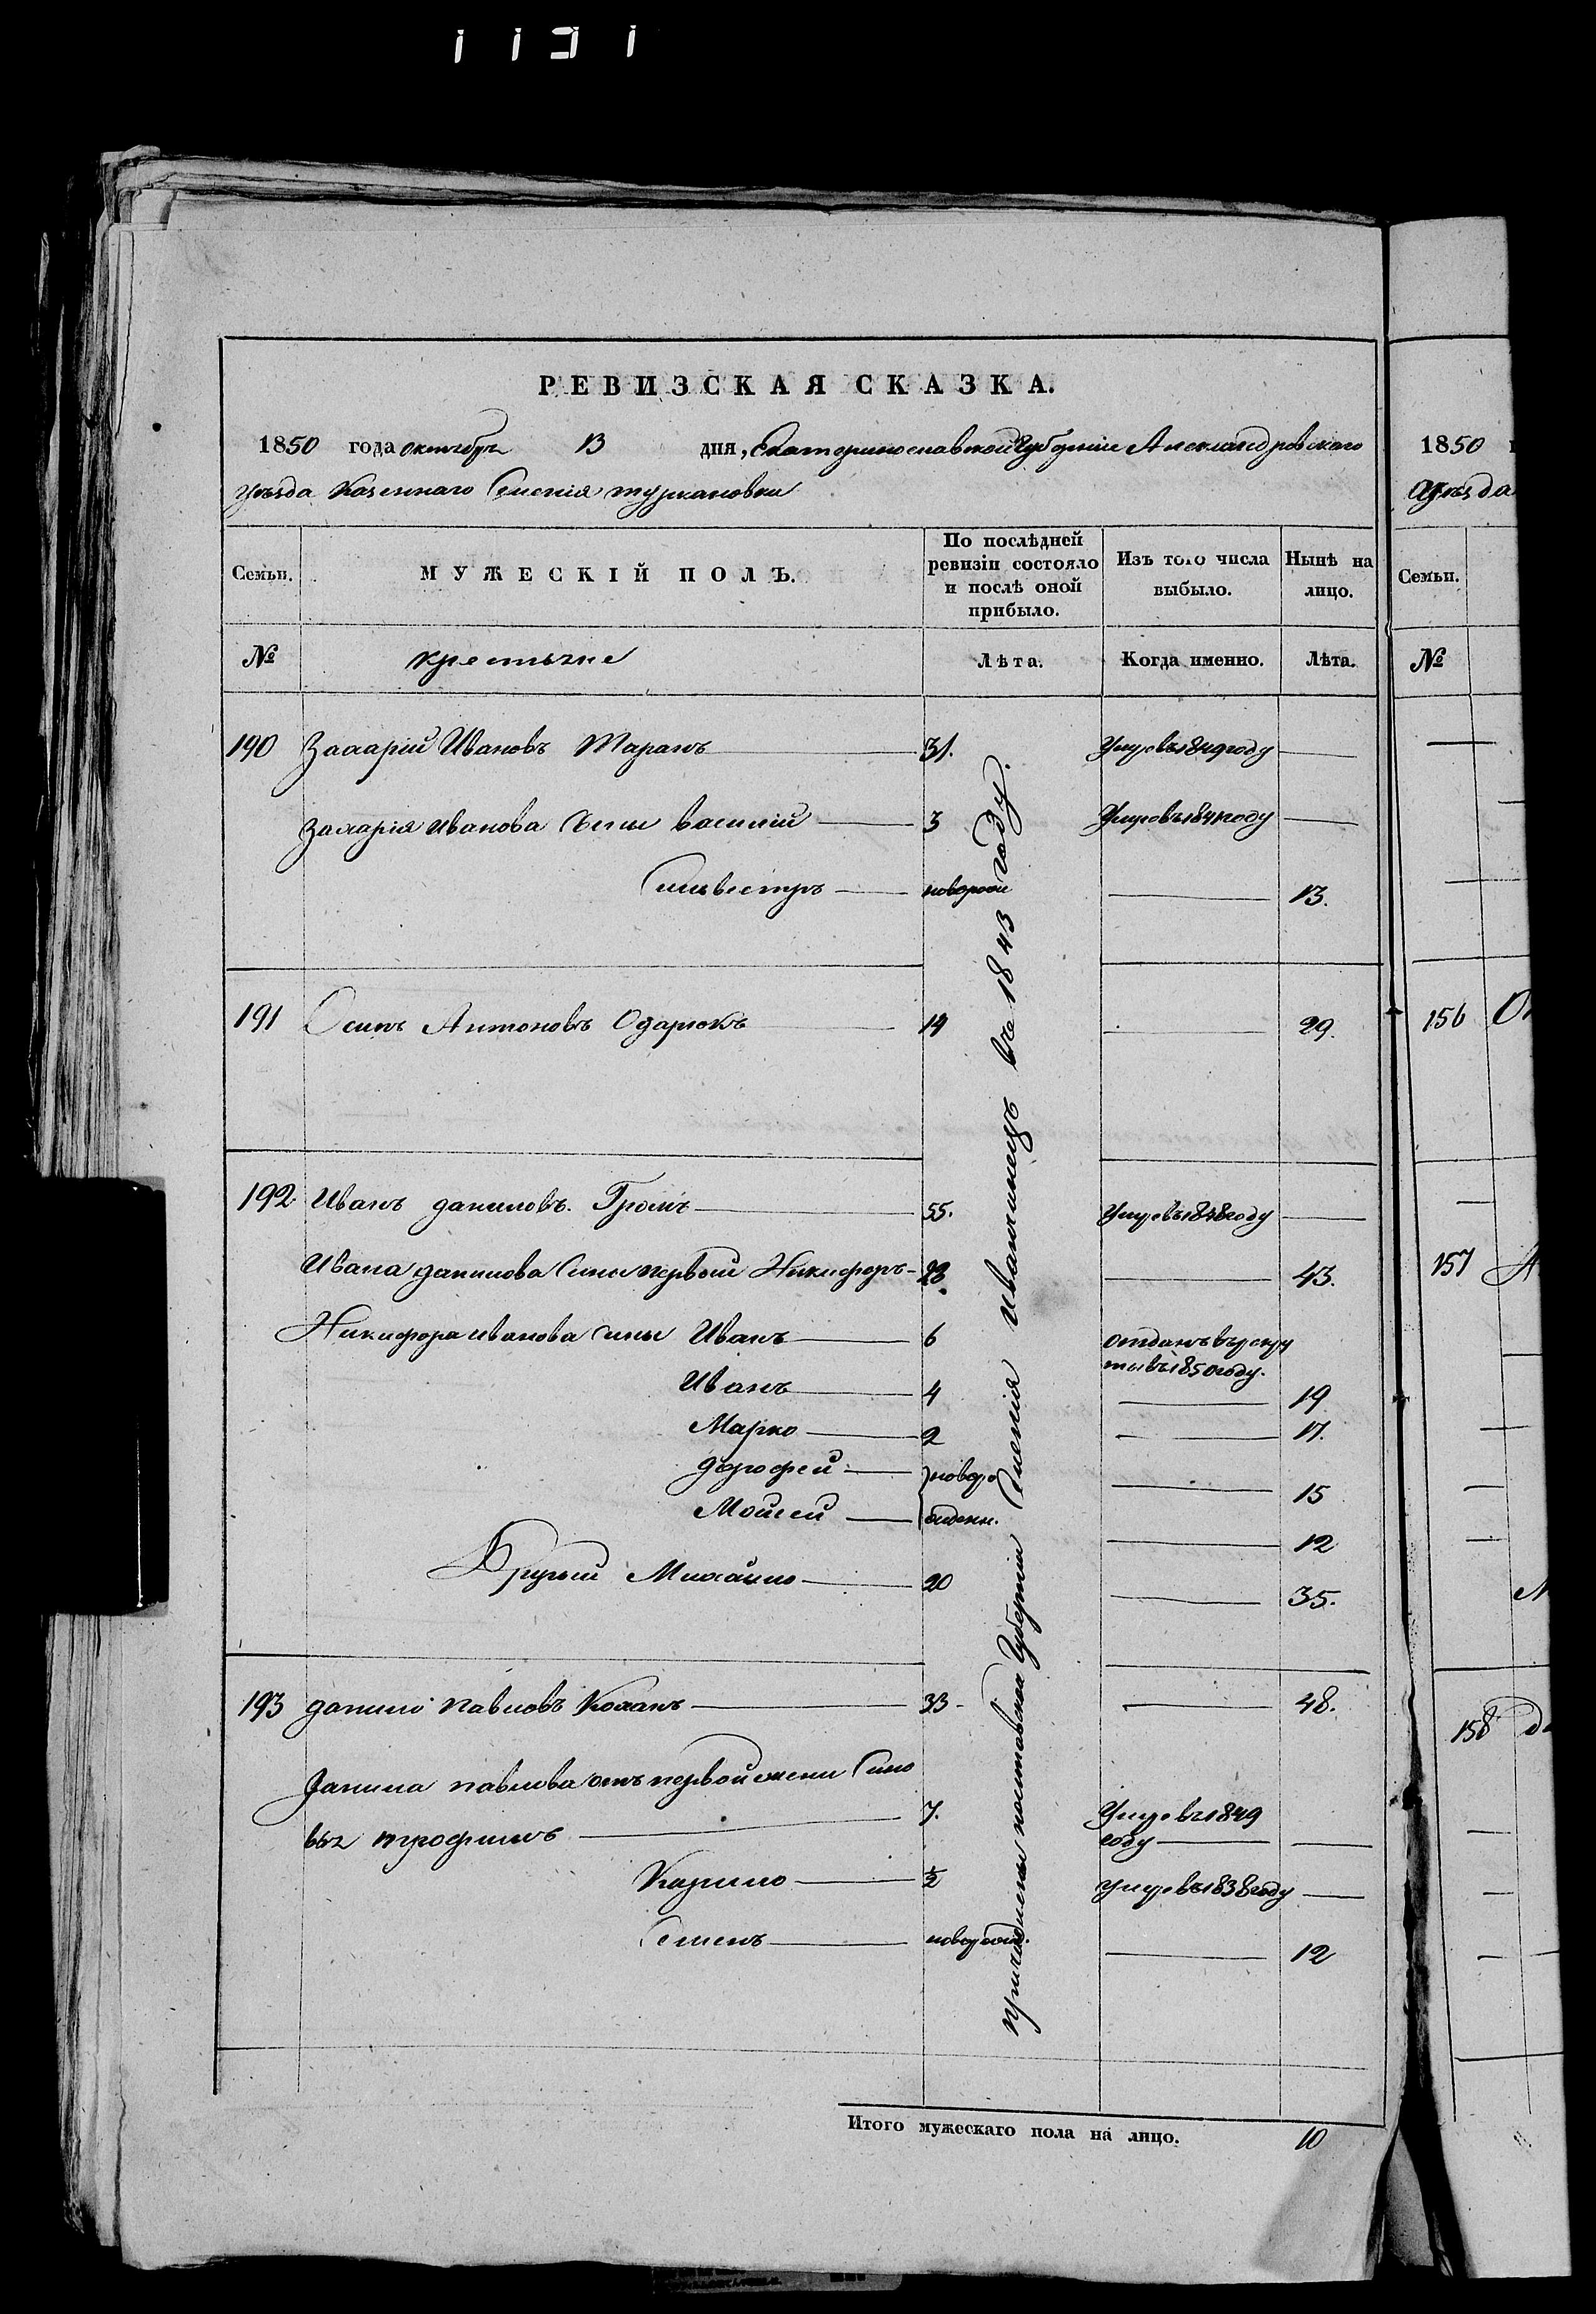 РЕВИЗСКАЯ СКАЗКА.
1850 года октября 13 дня, Екатеринославской Губерніи Александровскаго
уѣзда Казеннаго Селенія туркановки
Семьи.
МУЖЕСКІЙ ПОЛЪ.
По послѣдней ревизіи состояло и послѣ оной прибыло.
Изъ того числа выбыло.
Нынѣ на лицо.
№ крестьяне Лѣта. Когда именно. Лѣта.
190 Захарій Ивановъ Таранъ 31. Умре въ 1849 году
Захарія Иванова Сыны василій 3 Умре въ 1841 году
Сильвестръ новорож 13.
191 Осипъ Антоновъ Одарюкъ 14 29.
192 Иванъ даниловъ. Громъ 55. Умре въ 1848 году
Ивана данилова Сыны первый Никифоръ 28. 43.
Никифора иванова сыны Иванъ 6 отданъ въ рекру
ты въ 1850 году.
Иванъ 4 19
Марко 2 17.
дорофей новоро 15
Мойсей жденн. 12
Другий Михайло 20 35.
193 данило павловъ Коханъ 33 48.
Данила павлова отъ первой жены Сыно
вья трофимъ 7. Умре въ 1849
году
Карило ½ умре въ 1838 году
Семенъ новорож. 12
причислены полтавской Губерніи Селенія иванчинецъ въ 1843 году.
Итого мужескаго пола на лицо. 10
1850
Уѣзда
Семьи.
№
156
157
158